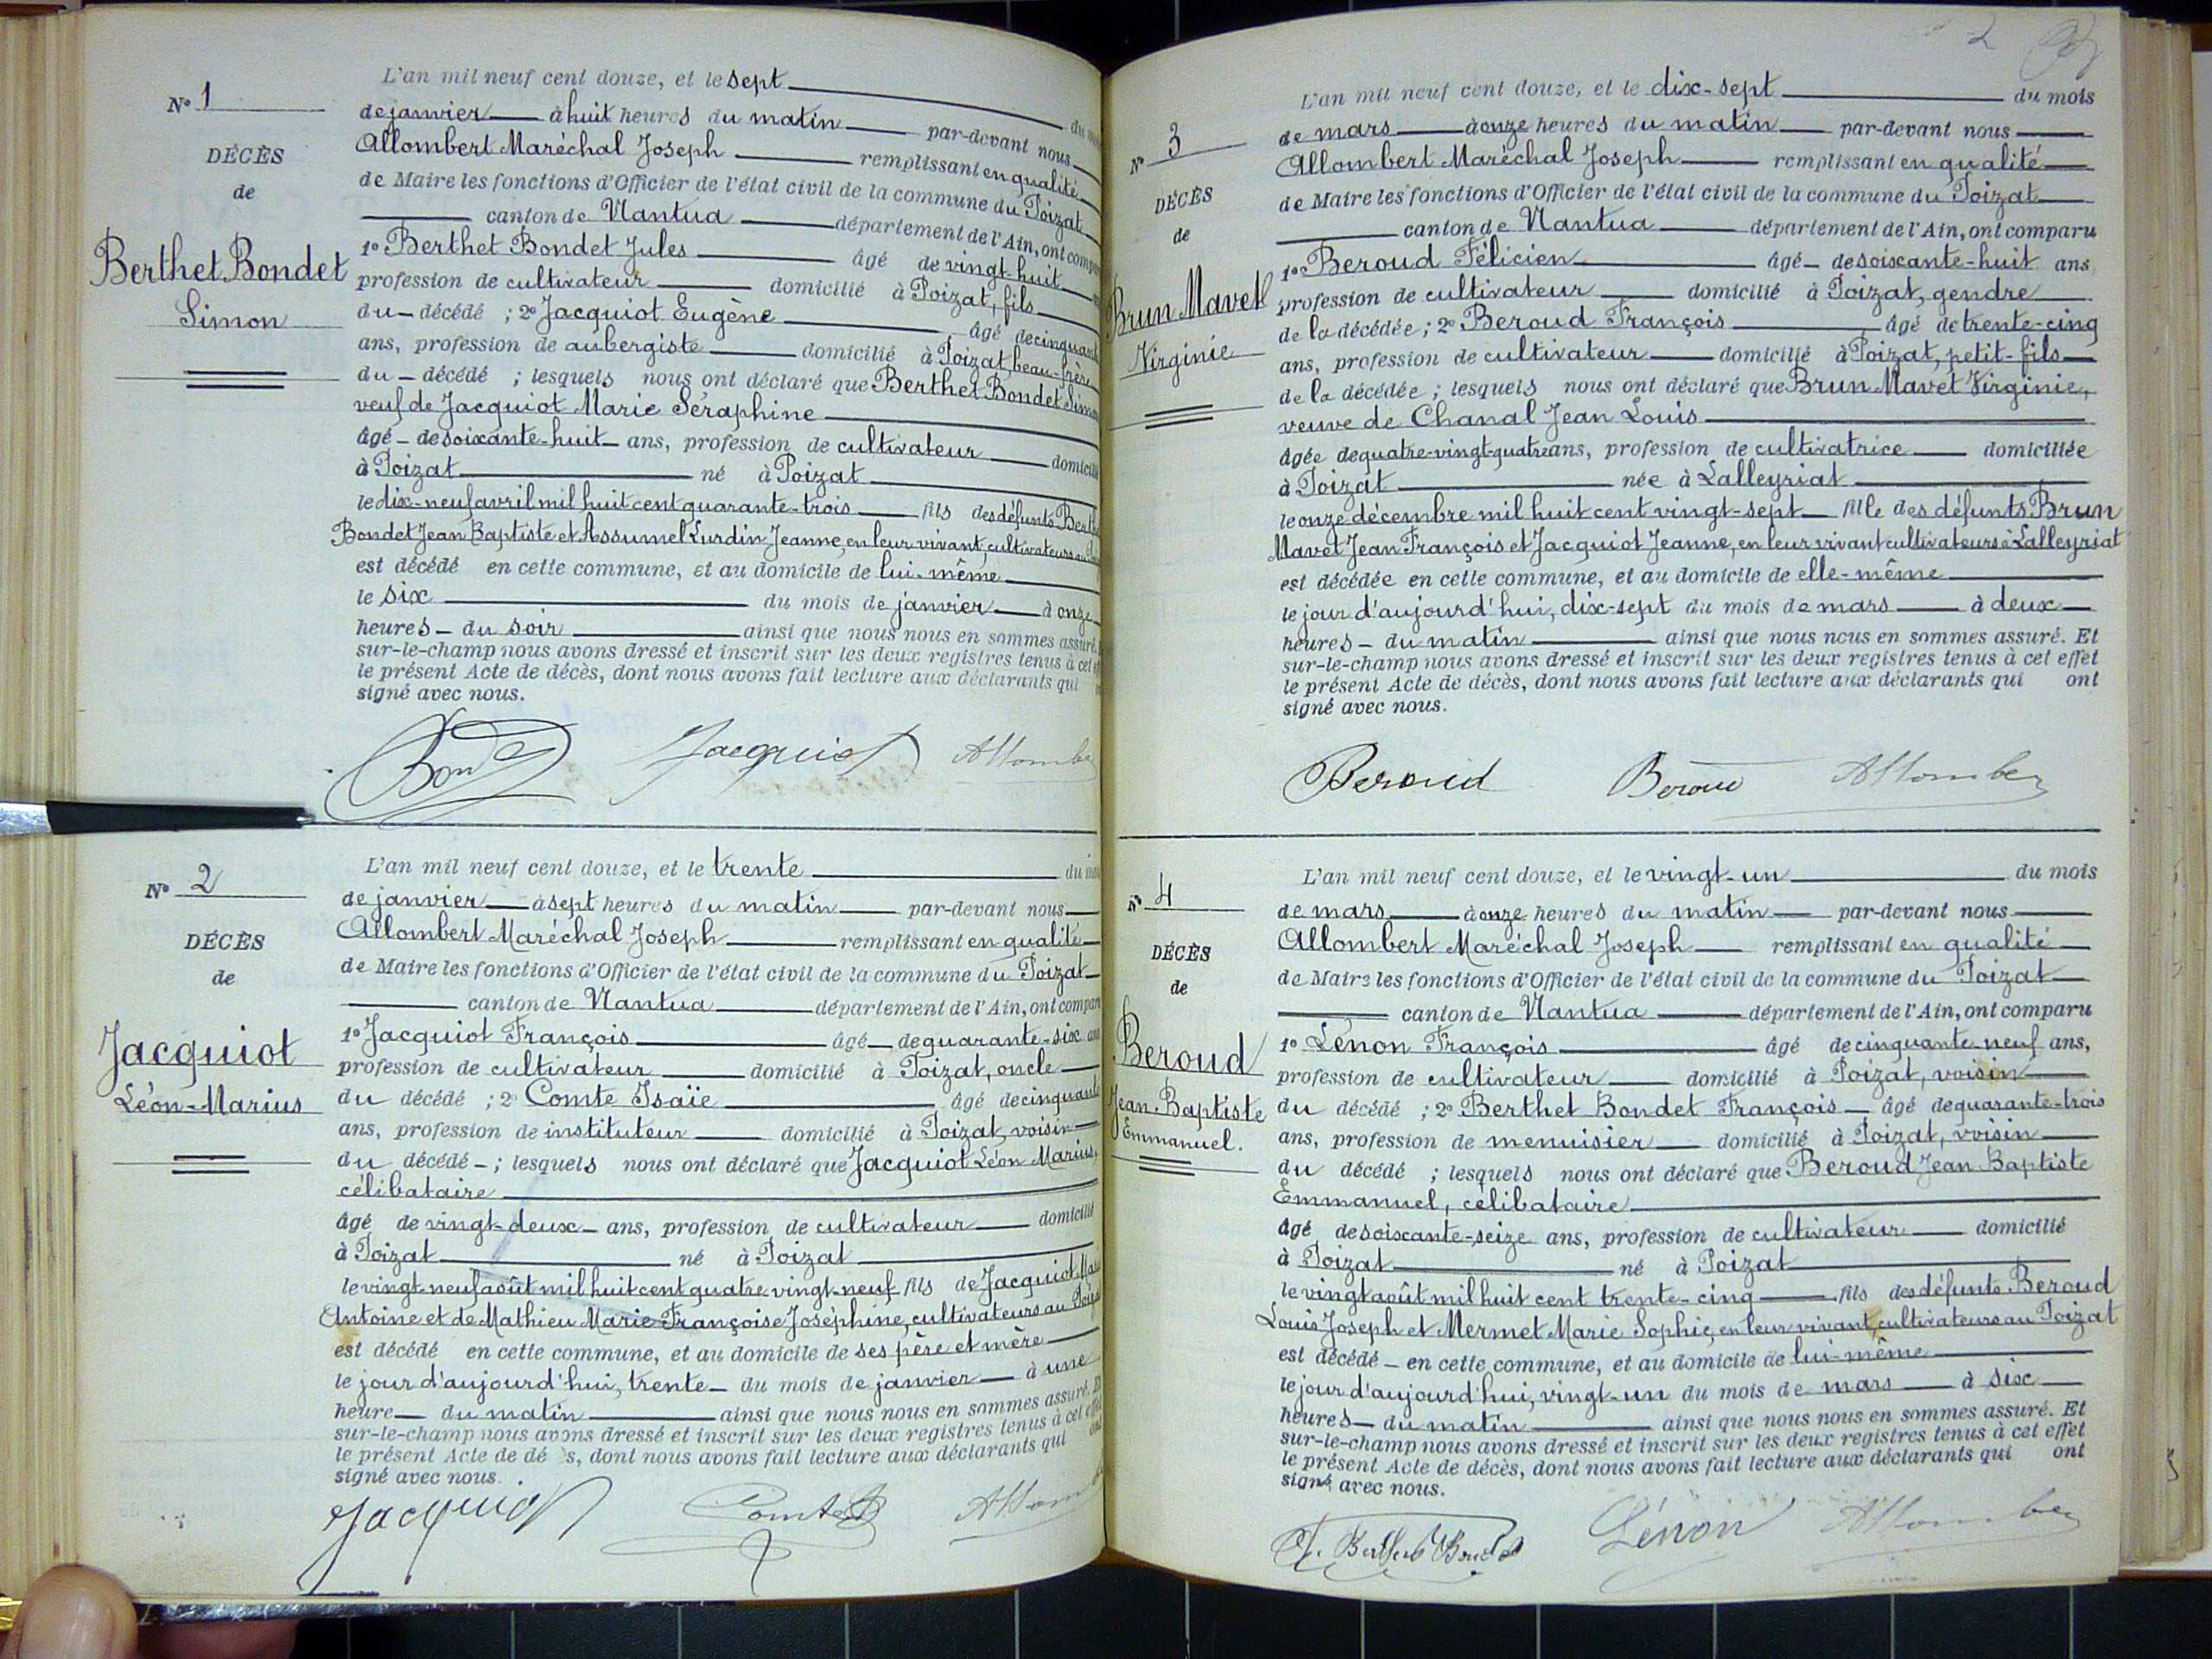 L'an mil neuf cent douze, et le sept du
Nº 1
de janvier à huit heures du matin par-devant nous
DÉCÈS
Allombert Maréchal Joseph remplissant en qualité
de
de Maire les fonctions d'Officier de l'état civil de la commune du Poizat
canton de Nantua département de l'Ain, ont
Berthet Bondet
Simon
1º Berthet Bondet Jules âgé de vingt-huit
profession de cultivateur domicilié à Poizat, fils
du décédé ; 2º Jacquiot Eugène âgé de
ans, profession de aubergiste domicilié à Poizat, beau-frère
du décédé ; lesquels nous ont déclaré que Berthet Bondet
veuf de Jacquiot Marie Séraphine
âgé de soixante-huit ans, profession de cultivateur
à Poizat né à Poizat
le dix-neuf avril mil huit cent quarante-trois fils des défunts
Bondet Jean Baptiste et Assumel Lurdin Jeanne, en leur vivant, cultivateurs au
est décédé en cette commune, et au domicile de lui-même
le six du mois de janvier à onze
heures du soir ainsi que nous nous en sommes assuré.
sur-le-champ nous avons dressé et inscrit sur les deux registres tenus à cet
le présent Acte de décès, dont nous avons fait lecture aux déclarants qui
signé avec nous.
Jacquiot
L'an mil neuf cent douze, et le trente du
Nº 2
de janvier à sept heures du matin par-devant nous
DÉCÈS
Allombert Maréchal Joseph remplissant en qualité
de
de Maire les fonctions d'Officier de l'état civil de la commune du Poizat
canton de Nantua département de l'Ain, ont
Jacquiot
Léon-Marius
1º Jacquiot François âgé de quarante-six
profession de cultivateur domicilié à Poizat, oncle
du décédé ; 2º Comte Isaïe âgé de
ans, profession de instituteur domicilié à Poizat, voisin
du décédé ; lesquels nous ont déclaré que Jacquiot Léon Marius,
célibataire
âgé de vingt-deux ans, profession de cultivateur domicilié
à Poizat né à Poizat
le vingt-neuf août mil huit cent quatre vingt-neuf fils de Jacquiot
Antoine et de Mathieu Marie Françoise Joséphine, cultivateurs au
est décédé en cette commune, et au domicile de ses père et mère
le jour d'aujourd'hui, trente du mois de janvier à une
heure du matin ainsi que nous nous en sommes assuré.
sur-le-champ nous avons dressé et inscrit sur les deux registres tenus à cet
le présent Acte de dé s, dont nous avons fait lecture aux déclarants qui
signé avec nous.
Jacquiot Comte
2
L'an mil neuf cent douze, et le dix-sept du mois
Nº 3
de mars à onze heures du matin par-devant nous
DÉCÈS
Allombert Maréchal Joseph remplissant en qualité
de
de Maire les fonctions d'Officier de l'état civil de la commune du Poizat
canton de Nantua département de l'Ain, ont comparu
Brun Mavet
Virginie
1º Beroud Félicien âgé de soixante-huit ans
profession de cultivateur domicilié à Poizat, gendre
de la décédée ; 2º Beroud François âgé de trente-cinq
ans, profession de cultivateur domicilié à Poizat, petit-fils
de la décédée ; lesquels nous ont déclaré que Brun Mavet Virginie,
veuve de Chanal Jean Louis
âgée de quatre-vingt-quatre ans, profession de cultivatrice domiciliée
à Poizat née à Lalleyriat
le onze décembre mil huit cent vingt-sept fille des défunts Brun
Mavet Jean François et Jacquiot Jeanne, en leur vivant cultivateurs à Lalleyriat
est décédée en cette commune, et au domicile de elle-même
le jour d'aujourd'hui, dix-sept du mois de mars à deux
heures du matin ainsi que nous nous en sommes assuré. Et
sur-le-champ nous avons dressé et inscrit sur les deux registres tenus à cet effet
le présent Acte de décès, dont nous avons fait lecture aux déclarants qui ont
signé avec nous.
Beroud Beroud Allombert
L'an mil neuf cent douze, et le vingt-un du mois
Nº 4
de mars à onze heures du matin par-devant nous
DÉCÈS
Allombert Maréchal Joseph remplissant en qualité
de
de Maire les fonctions d'Officier de l'état civil de la commune du Poizat
canton de Nantua département de l'Ain, ont comparu
Beroud
Jean-Baptiste
Emmanuel.
1º Lénon François âgé de cinquante-neuf ans,
profession de cultivateur domicilié à Poizat, voisin
du décédé ; 2º Berthet Bondet François âgé de quarante-trois
ans, profession de menuisier domicilié à Poizat, voisin
du décédé ; lesquels nous ont déclaré que Beroud Jean Baptiste
Emmanuel, célibataire
âgé de soixante-seize ans, profession de cultivateur domicilié
à Poizat né à Poizat
le vingt août mil huit cent trente-cinq fils des défunts Beroud
Louis Joseph et Mermet Marie Sophie, en leur vivant, cultivateurs au Poizat
est décédé en cette commune, et au domicile de lui-même
le jour d'aujourd'hui, vingt-un du mois de mars à six
heures du matin ainsi que nous nous en sommes assuré. Et
sur-le-champ nous avons dressé et inscrit sur les deux registres tenus à cet effet
le présent Acte de décès, dont nous avons fait lecture aux déclarants qui ont
signé avec nous.
F. Berthet Bondet Lénon Allombert